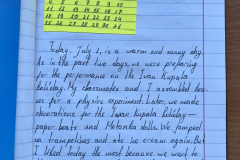 4 5 6 7 8 9 10
11 12 13 14 15 16 17
18 19 20 21 22 23 24
25 26 27 28 29 30 31
Today, July 1, is a warm and sunny day.
As in the past two days, we were preparing
for the performance on the Ivan Kupala
holiday. My classmates and I assembled here
we for a physics experiment. Later, we made
decorations for the Ivan Kupala holiday —
paper boats and Motanka dolls. We jumped
on trampolines and ate ice cream again. But
I liked today the most because we went to